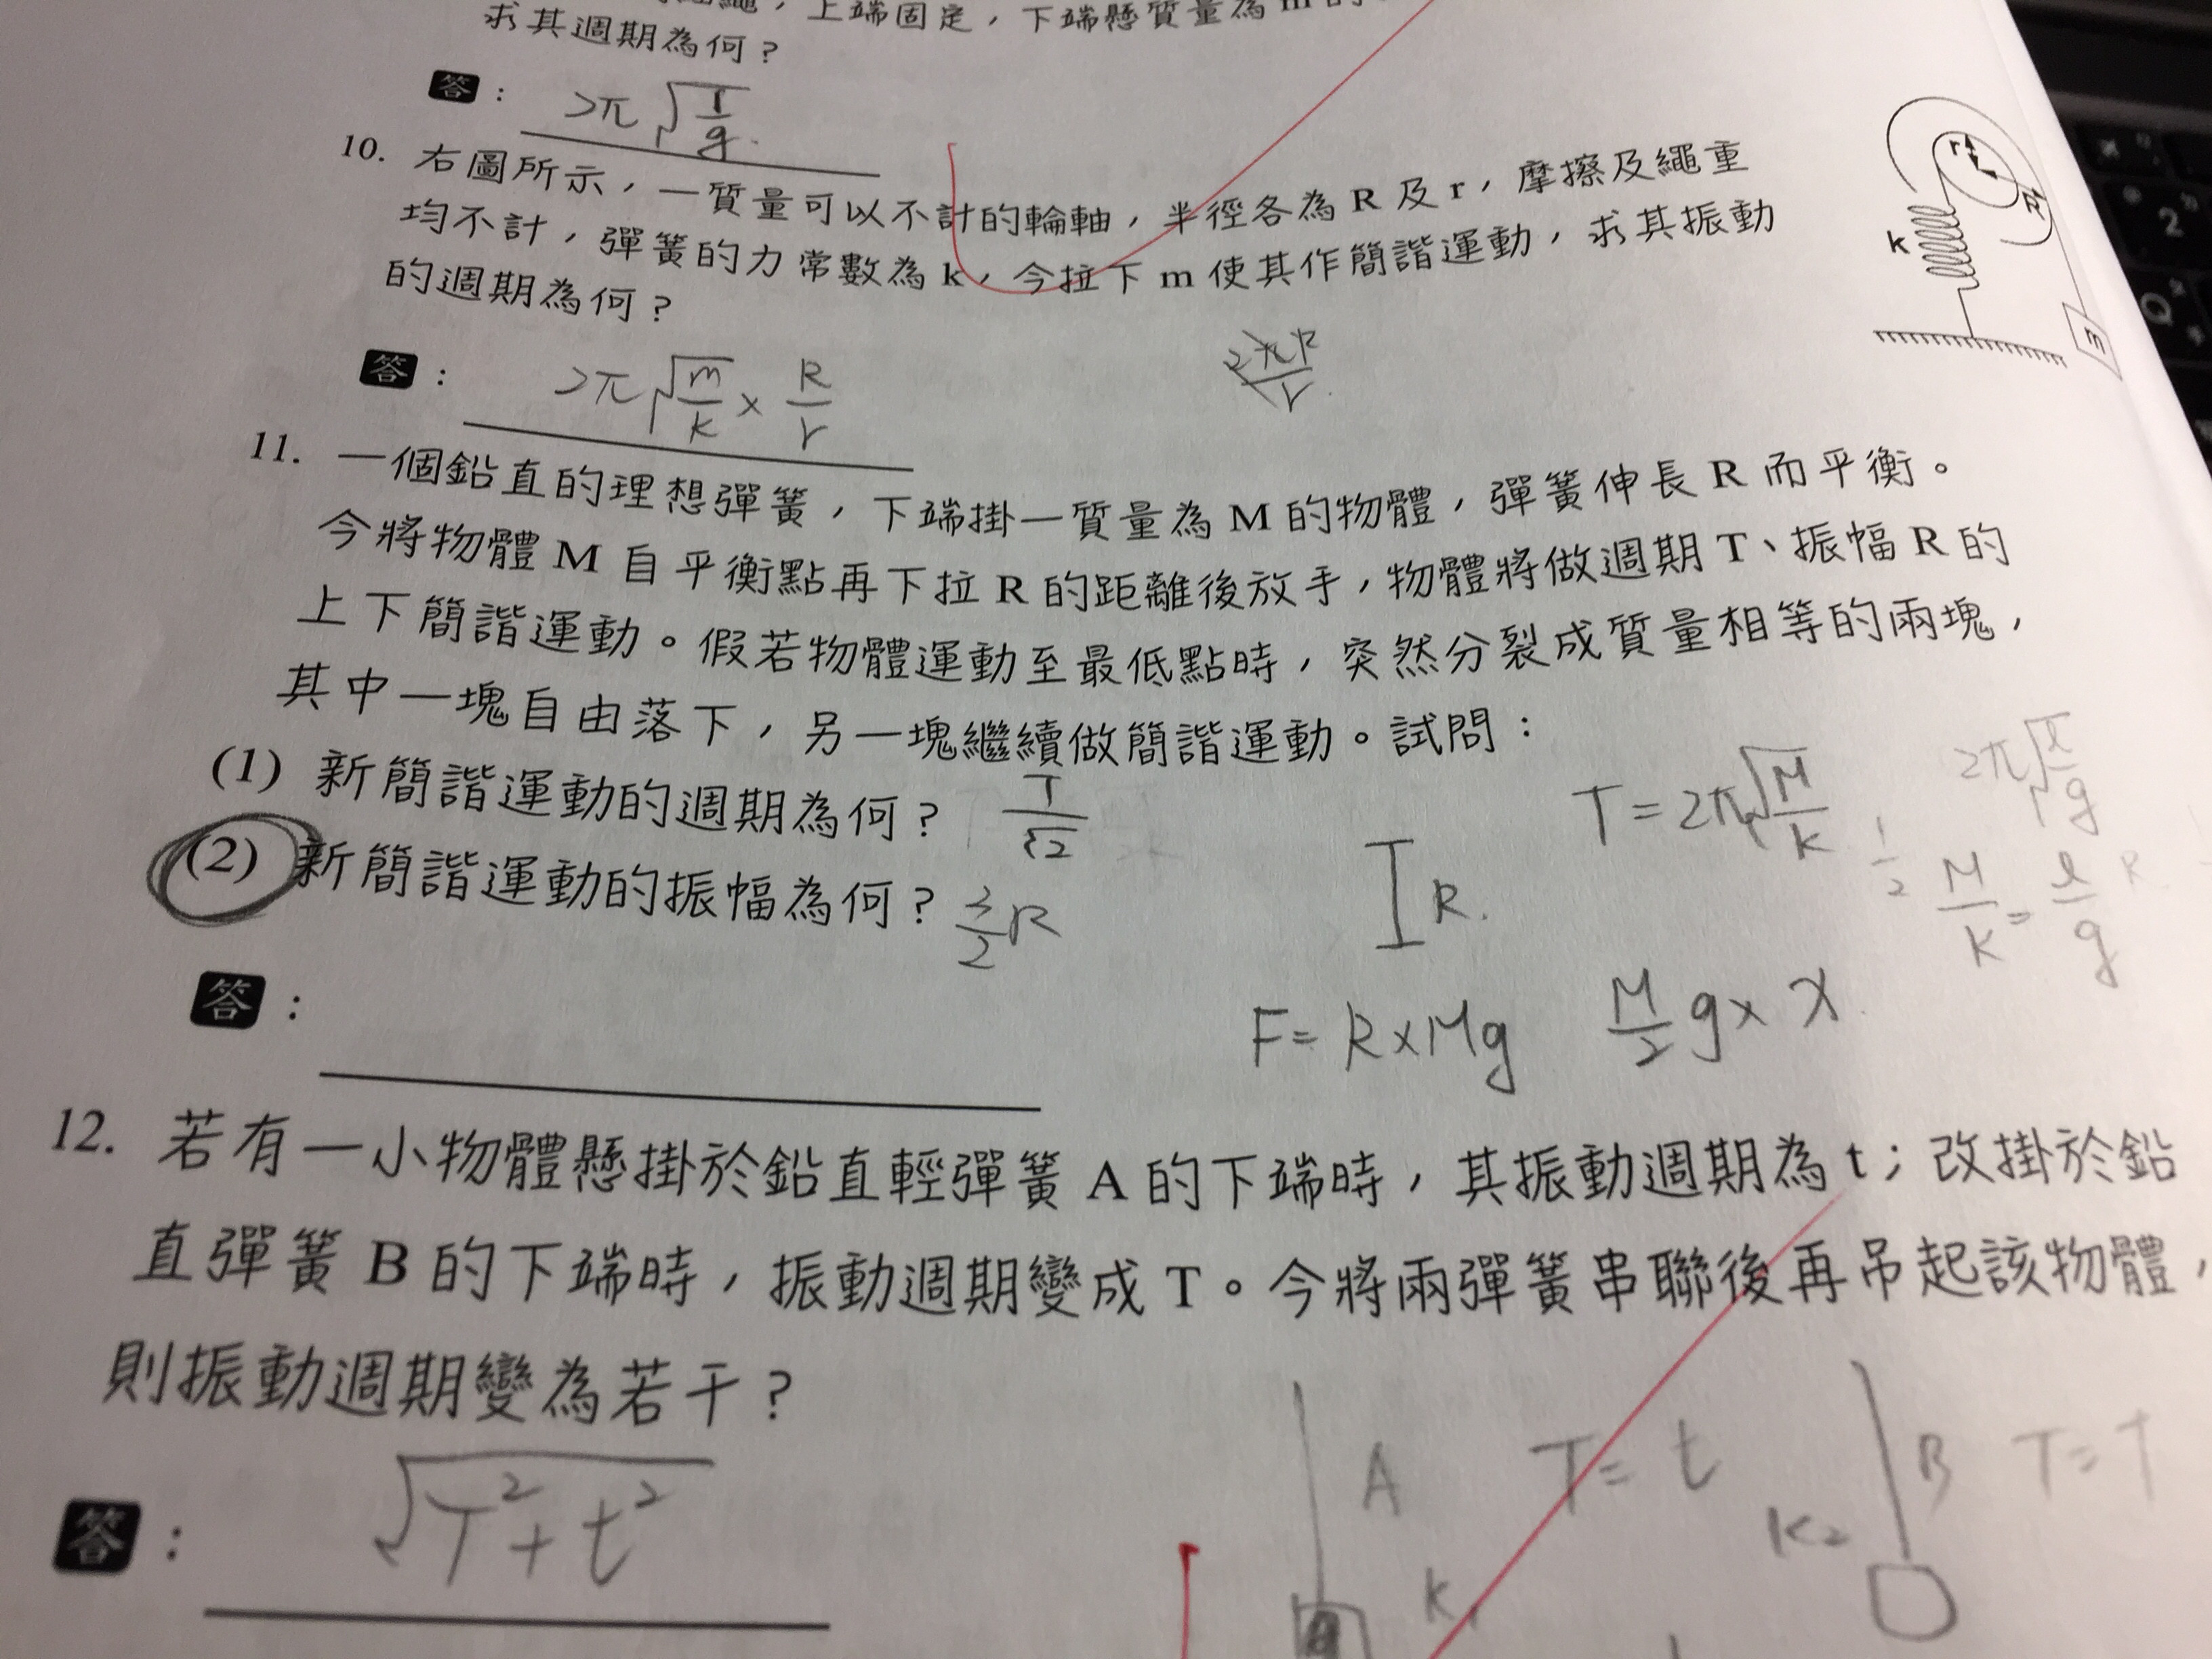 繩，上端固定，下端懸質量為 m 的
求其週期為何？
答： 2π√(l/g)
10. 右圖所示，一質量可以不計的輪軸，半徑各為 R 及 r，摩擦及繩重
均不計，彈簧的力常數為 k，今拉下 m 使其作簡諧運動，求其振動
的週期為何？
r
R
k
m
答： 2π√(m/k) × R/r
2πR/r
11. 一個鉛直的理想彈簧，下端掛一質量為 M 的物體，彈簧伸長 R 而平衡。
今將物體 M 自平衡點再下拉 R 的距離後放手，物體將做週期 T、振幅 R 的
上下簡諧運動。假若物體運動至最低點時，突然分裂成質量相等的兩塊，
其中一塊自由落下，另一塊繼續做簡諧運動。試問：
(1) 新簡諧運動的週期為何？ T/√2
T=2π√(M/k)
2π√(l/g)
(2) 新簡諧運動的振幅為何？ 3/2 R
R.
1/2 M/k = l/g R
答：
F= R×Mg M/2 g × x
12. 若有一小物體懸掛於鉛直輕彈簧 A 的下端時，其振動週期為 t；改掛於鉛
直彈簧 B 的下端時，振動週期變成 T。今將兩彈簧串聯後再吊起該物體，
則振動週期變為若干？
答： √(T²+t²)
A T= t
K₁
B T=T
K₂